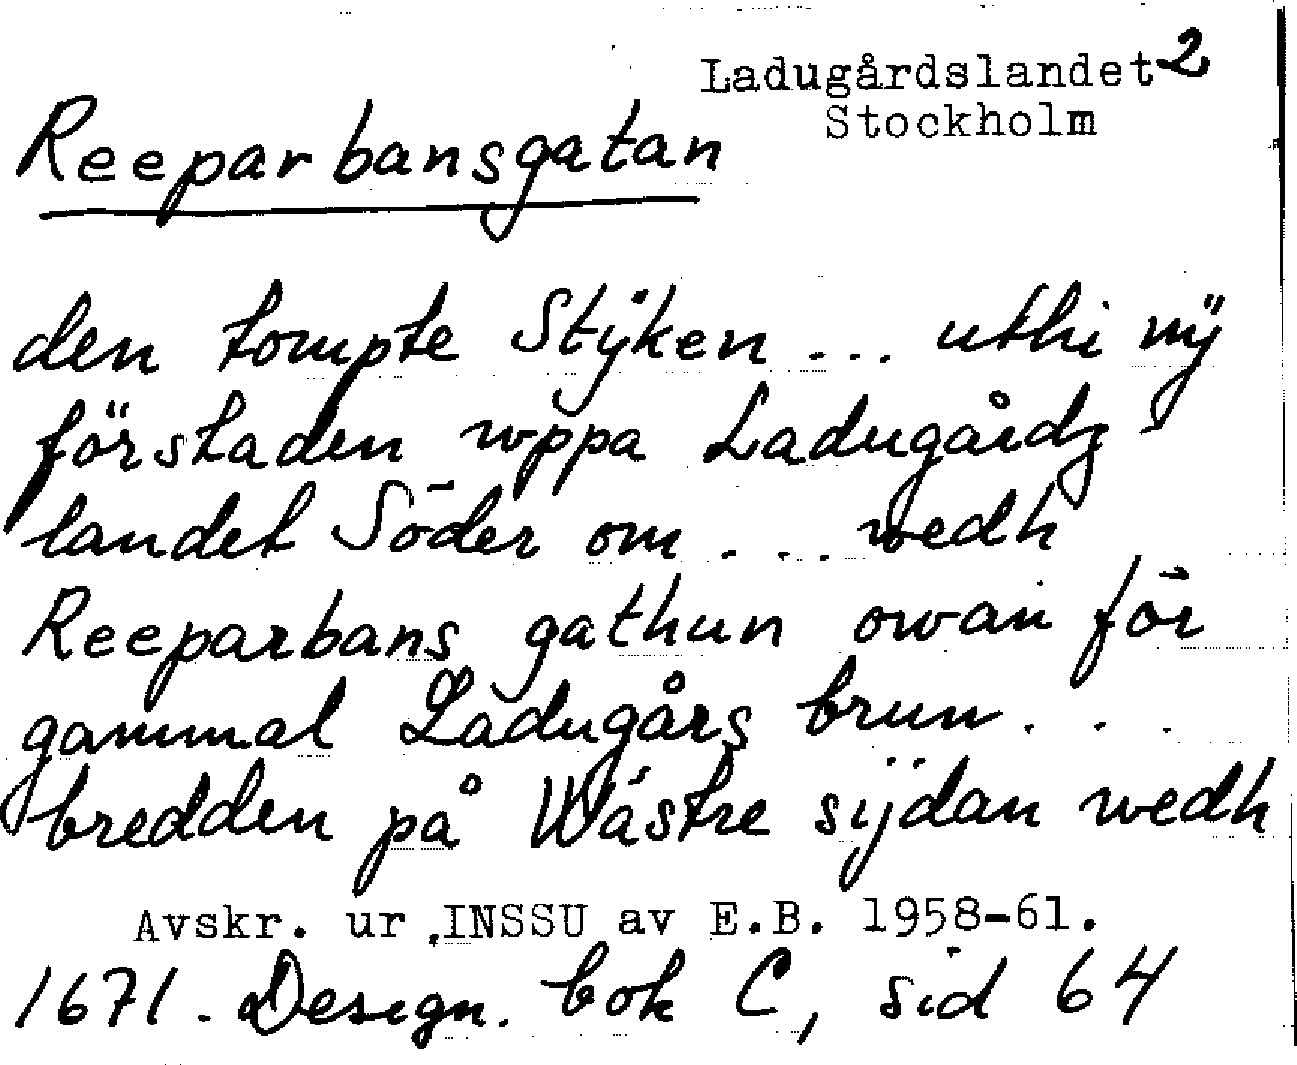 Ladugårdslandet 2
Stockholm
Reeparbansgatan
den tompte Stÿken ... uthi nÿ
förstaden wppa Ladugårdz
landet Söder om ... wedh
Reeparbans gathun owan för
gammal Ladugårs brun ...
bredden på Wästre sijdan wedh
Avskr. ur INSSU av E.B. 1958-61.
1671. Design. bok C, sid 64